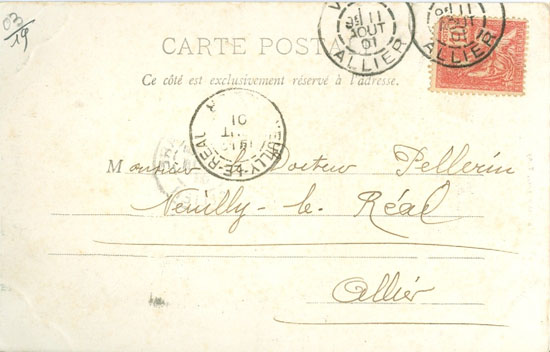 03
19
CARTE POSTA
Ce côté est exclusivement réservé à l'adresse.
11
AOUT
01
ALLIER
11
AOUT
01
ALLIER
01
NEUILLY-LE-RÉAL
Monsieur le Docteur Pellerin
Neuilly-le-Réal
Allier